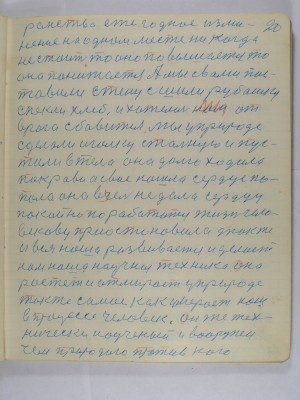 20
ранства ежегодное изми-
нение на одном месте ни когда
не стоит то оно повышается то
она понижается. А мы с вами пос-
тавили стену сшили рубашку
спекли хлеб, и хотели от
врага сбавится, мы у природе
сделали иголку стальную и пус-
тили в тела она долго ходила
покрова а све нашла сердце по-
пала она в чем не дала сердцу
покойно поработати жизнь чло-
векову приостановила факте
и вся наша развивается и делает
нам наша научная техника она
ростет и отмирает у природе
также само, как умерает наш
в процессе человек. Он же тех-
нически и ученый и вооружен
чем природого против кого